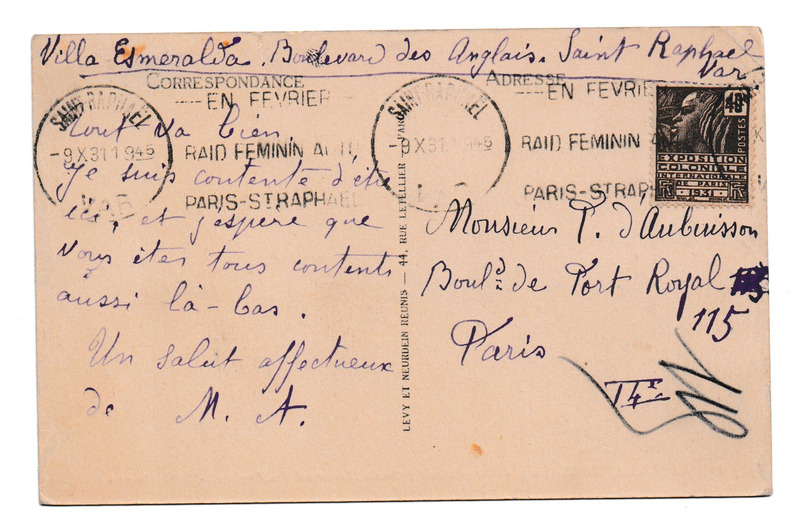 Villa Esmeralda, Boulevard des Anglais. Saint Raphael
Var
CORRESPONDANCE
ADRESSE
SAINT-RAPHAEL
-9X31 1945
VAR
EN FEVRIER
RAID FEMININ AUTO
PARIS-ST.RAPHAEL
SAINT-RAPHAEL
-9X31 1945
VAR
EN FEVRIER
RAID FEMININ
PARIS-ST.RAPHA
40c
POSTES
EXPOSITION
COLONIALE
INTERNATIONALE
DE PARIS
1931
Tout va bien.
Je suis contente d'être
ici, et j'espère que
vous êtes tous contents
aussi là-bas.
Un salut affectueux
de M. A.
LEVY ET NEURDEIN REUNIS — 44, RUE LETELLIER
Monsieur P. d'Aubuisson
Boul.d de Port Royal
115
Paris
14e